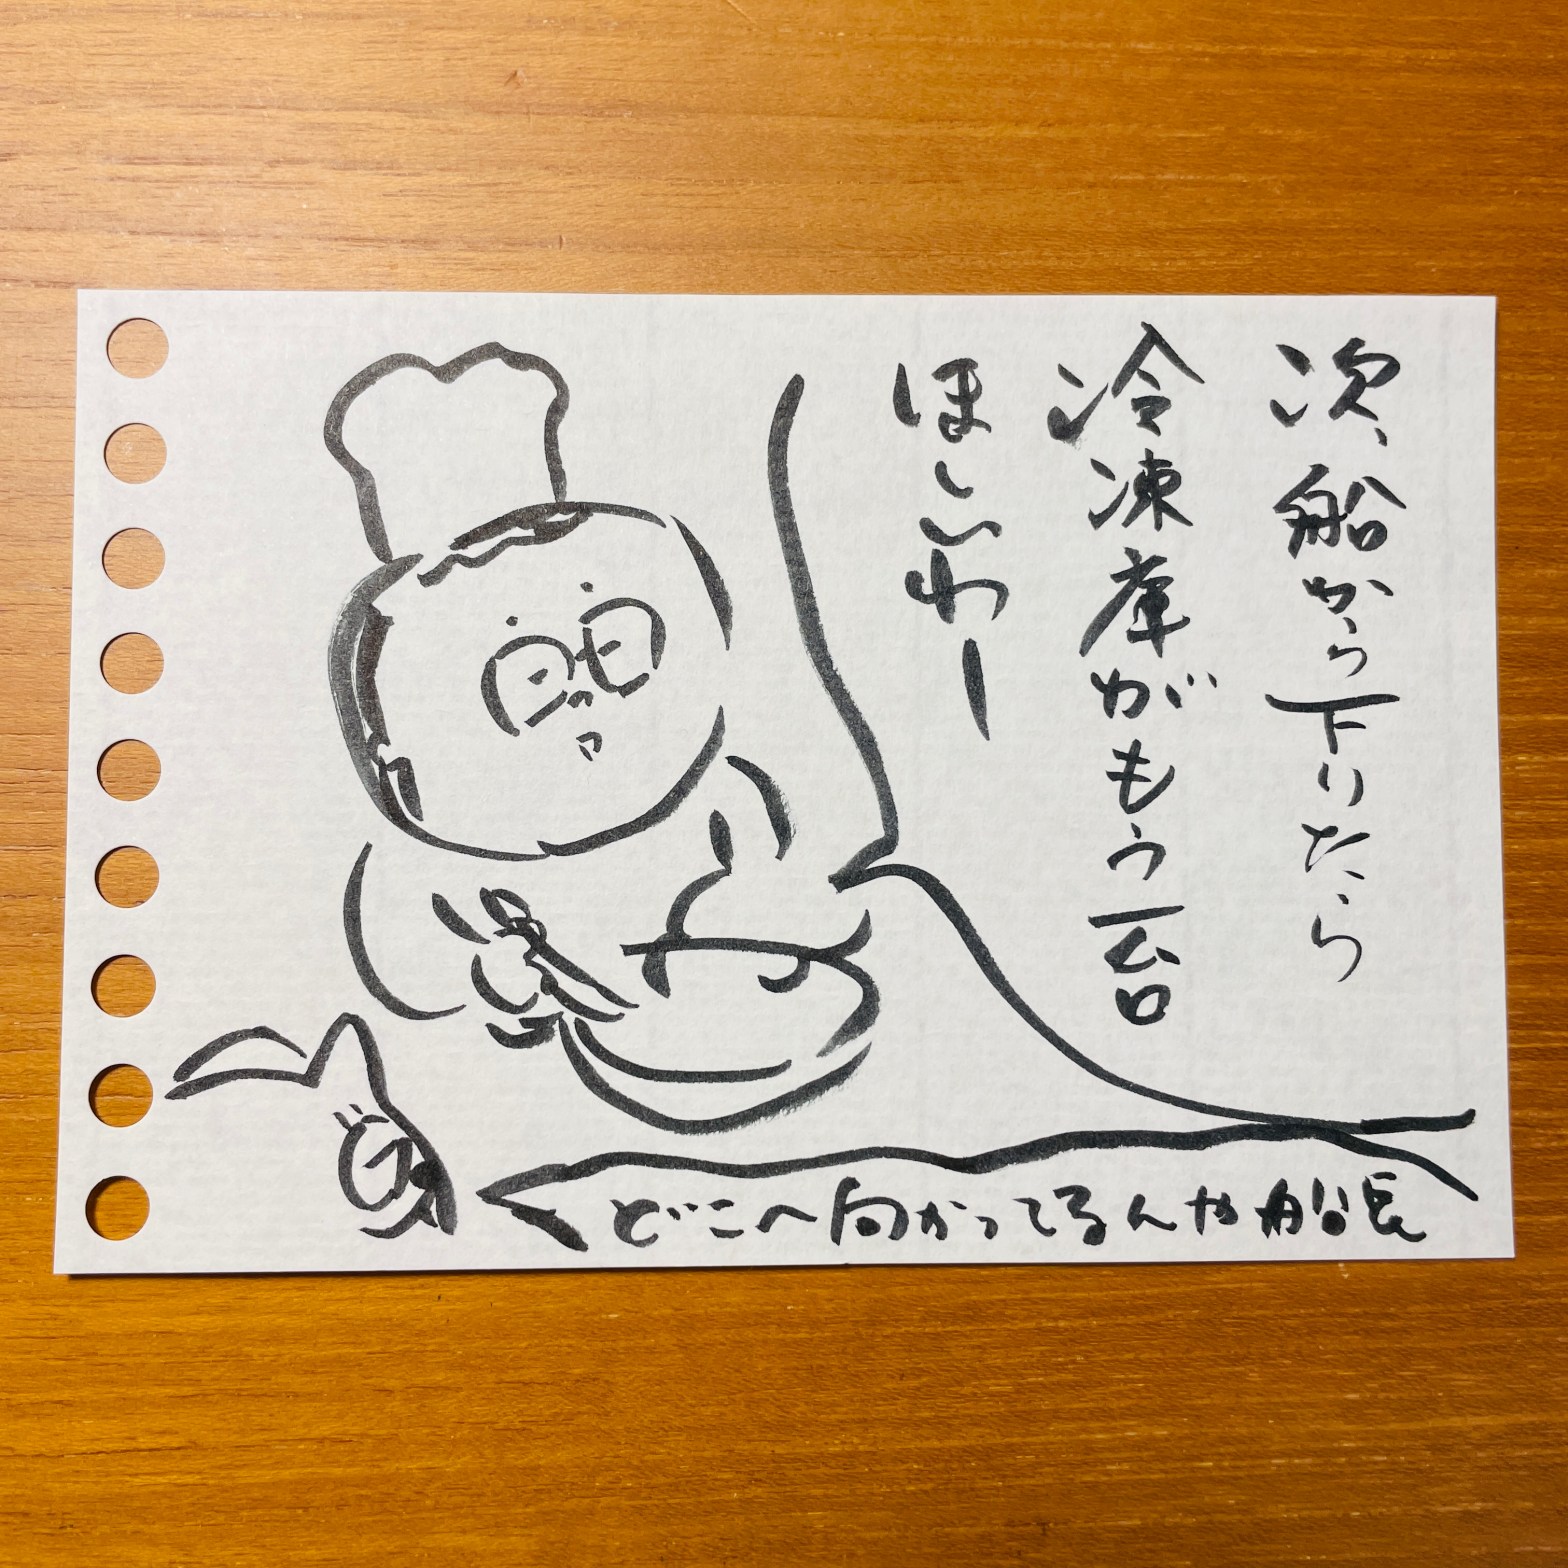 次、船から下りたら
冷凍庫がもう一台
ほしいわー
どこへ向かってるんや船長